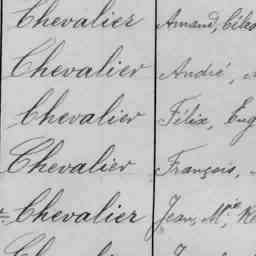 Chevalier Amand, Céles
Chevalier André,
Chevalier Félix, Eug
Chevalier François,
Chevalier Jean, M.ie Re